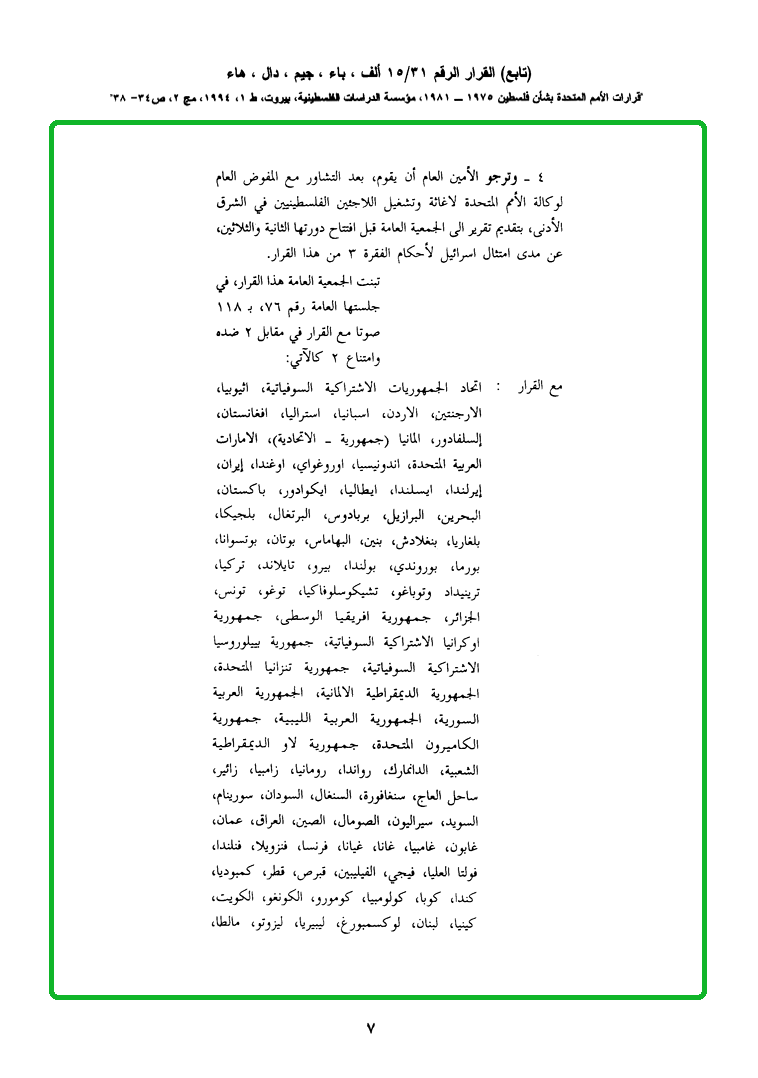 (تابع) القرار الرقم ١٥/٣١ ألف ، باء ، جيم ، دال ، هاء
"قرارات الأمم المتحدة بشأن فلسطين ١٩٧٥ ــ ١٩٨١، مؤسسة الدراسات الفلسطينية، بيروت، ط ١، ١٩٩٤، مج ٢، ص٣٤- ٣٨"
٤ ـ وترجو الأمين العام أن يقوم، بعد التشاور مع المفوض العام
لوكالة الأمم المتحدة لاغاثة وتشغيل اللاجئين الفلسطينيين في الشرق
الأدنى، بتقديم تقرير الى الجمعية العامة قبل افتتاح دورتها الثانية والثلاثين،
عن مدى امتثال اسرائيل لأحكام الفقرة ٣ من هذا القرار.
تبنت الجمعية العامة هذا القرار، في
جلستها العامة رقم ٧٦، بـ ١١٨
صوتا مع القرار في مقابل ٢ ضده
وامتناع ٢ كالآتي:
مع القرار : اتحاد الجمهوريات الاشتراكية السوفياتية، اثيوبيا،
الارجنتين، الاردن، اسبانيا، استراليا، افغانستان،
إلسلفادور، المانيا (جمهورية ـ الاتحادية)، الامارات
العربية المتحدة، اندونيسيا، اوروغواي، اوغندا، إيران،
إيرلندا، ايسلندا، ايطاليا، ايكوادور، باكستان،
البحرين، البرازيل، بربادوس، البرتغال، بلجيكا،
بلغاريا، بنغلادش، بنين، البهاماس، بوتان، بوتسوانا،
بورما، بوروندي، بولندا، بيرو، تايلاند، تركيا،
ترينيداد وتوباغو، تشيكوسلوفاكيا، توغو، تونس،
الجزائر، جمهورية افريقيا الوسطى، جمهورية
اوكرانيا الاشتراكية السوفياتية، جمهورية بييلوروسيا
الاشتراكية السوفياتية، جمهورية تنزانيا المتحدة،
الجمهورية الديمقراطية الالمانية، الجمهورية العربية
السورية، الجمهورية العربية الليبية، جمهورية
الكاميرون المتحدة، جمهورية لاو الديمقراطية
الشعبية، الدانمارك، رواندا، رومانيا، زامبيا، زائير،
ساحل العاج، سنغافورة، السنغال، السودان، سورينام،
السويد، سيراليون، الصومال، الصين، العراق، عمان،
غابون، غامبيا، غانا، غيانا، فرنسا، فنزويلا، فنلندا،
فولتا العليا، فيجي، الفيليبين، قبرص، قطر، كمبوديا،
كندا، كوبا، كولومبيا، كومورو، الكونغو، الكويت،
كينيا، لبنان، لوكسمبورغ، ليبيريا، ليزوتو، مالطا،
٧